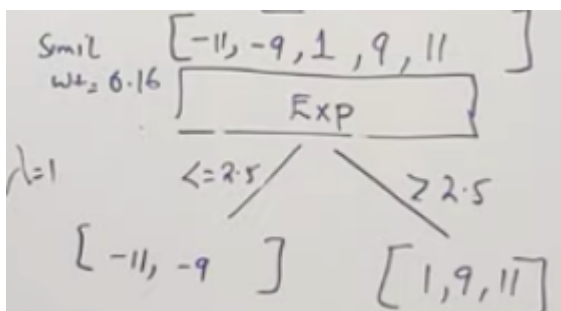 Smil [-11, -9, 1, 9, 11]
wt = 6.16
Exp
λ=1 <=2.5 > 2.5
[-11, -9] [1, 9, 11]